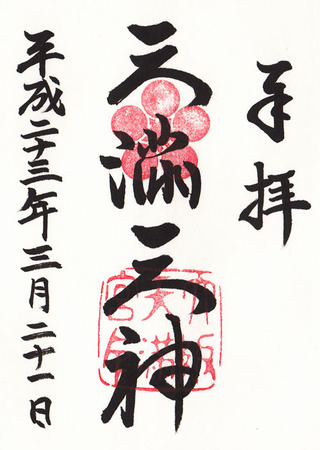 奉拝
天満天神
平成二十三年三月二十一日